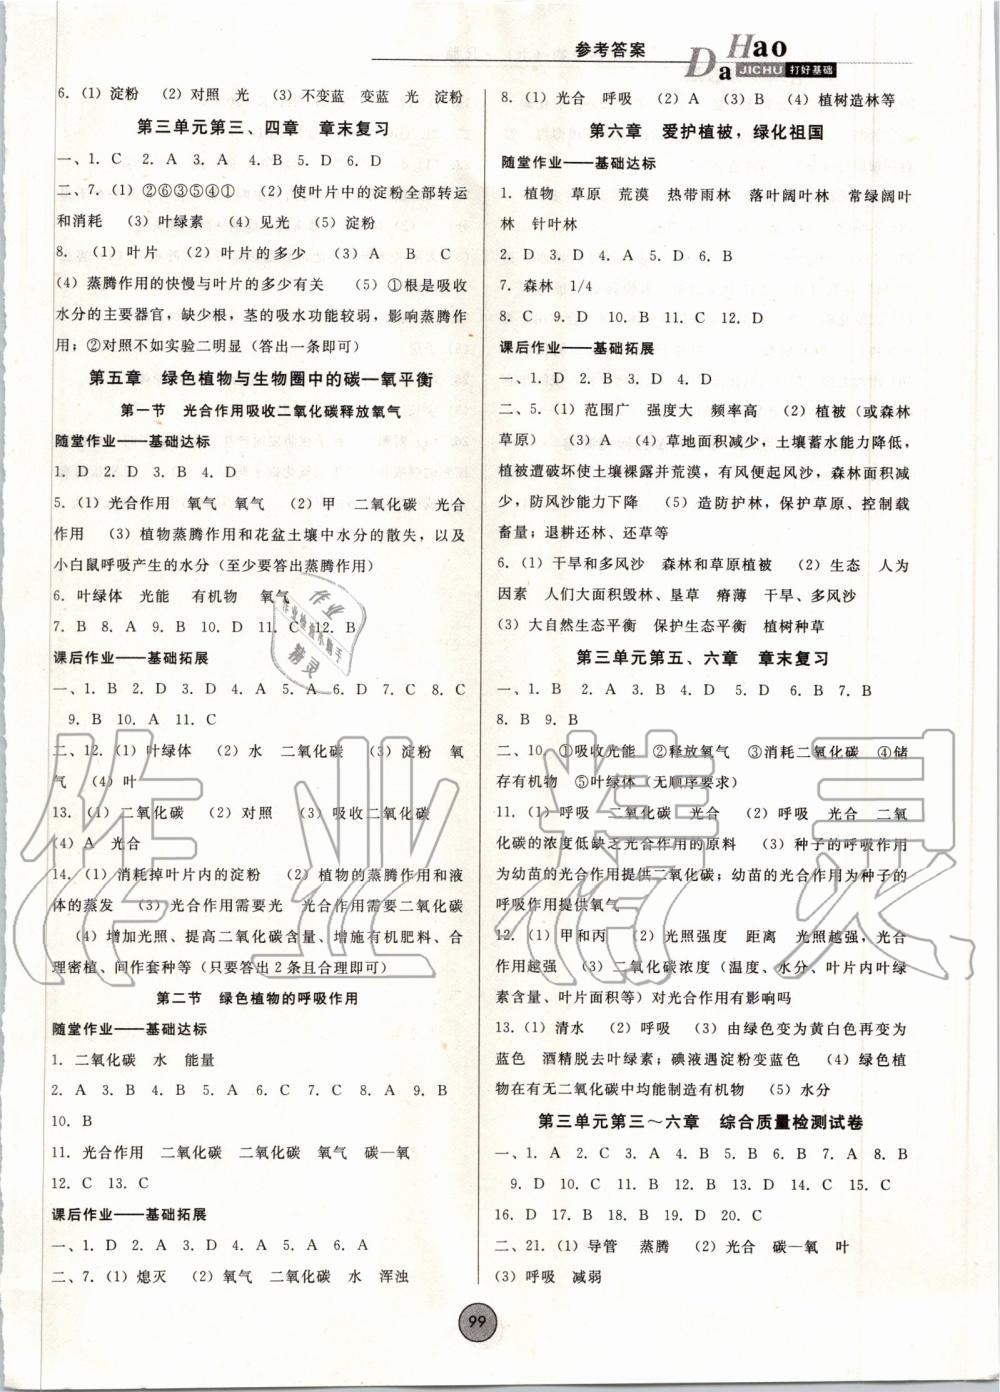 参考答案
Da Hao
JICHU 打好基础
6. (1) 淀粉 (2) 对照 光 (3) 不变蓝 变蓝 光 淀粉
第三单元第三、四章 章末复习
一、1. C 2. A 3. A 4. B 5. D 6. D
二、7. (1) ②⑥③⑤④① (2) 使叶片中的淀粉全部转运
和消耗 (3) 叶绿素 (4) 见光 (5) 淀粉
8. (1) 叶片 (2) 叶片的多少 (3) A B C
(4) 蒸腾作用的快慢与叶片的多少有关 (5) ①根是吸收
水分的主要器官，缺少根，茎的吸水功能较弱，影响蒸腾作
用；②对照不如实验二明显（答出一条即可）
第五章 绿色植物与生物圈中的碳—氧平衡
第一节 光合作用吸收二氧化碳释放氧气
随堂作业——基础达标
1. D 2. D 3. B 4. D
5. (1) 光合作用 氧气 氧气 (2) 甲 二氧化碳 光合
作用 (3) 植物蒸腾作用和花盆土壤中水分的散失，以及
小白鼠呼吸产生的水分（至少要答出蒸腾作用）
6. 叶绿体 光能 有机物 氧气
7. B 8. A 9. B 10. D 11. C 12. B
课后作业——基础拓展
一、1. B 2. D 3. D 4. A 5. A 6. D 7. C 8. C
9. B 10. A 11. C
二、12. (1) 叶绿体 (2) 水 二氧化碳 (3) 淀粉 氧
气 (4) 叶
13. (1) 二氧化碳 (2) 对照 (3) 吸收二氧化碳
(4) A 光合
14. (1) 消耗掉叶片内的淀粉 (2) 植物的蒸腾作用和液
体的蒸发 (3) 光合作用需要光 光合作用需要二氧化碳
(4) 增加光照、提高二氧化碳含量、增施有机肥料、合
理密植、间作套种等（只要答出 2 条且合理即可）
第二节 绿色植物的呼吸作用
随堂作业——基础达标
1. 二氧化碳 水 能量
2. A 3. B 4. B 5. A 6. C 7. C 8. A 9. B
10. B
11. 光合作用 二氧化碳 二氧化碳 氧气 碳—氧
12. C 13. C
课后作业——基础拓展
一、1. D 2. A 3. D 4. A 5. C 6. A
二、7. (1) 熄灭 (2) 氧气 二氧化碳 水 浑浊
8. (1) 光合 呼吸 (2) A (3) B (4) 植树造林等
第六章 爱护植被，绿化祖国
随堂作业——基础达标
1. 植物 草原 荒漠 热带雨林 落叶阔叶林 常绿阔叶
林 针叶林
2. D 3. D 4. A 5. D 6. B
7. 森林 1/4
8. C 9. D 10. B 11. C 12. D
课后作业——基础拓展
一、1. D 2. D 3. D 4. D
二、5. (1) 范围广 强度大 频率高 (2) 植被（或森林
草原） (3) A (4) 草地面积减少，土壤蓄水能力降低，
植被遭破坏使土壤裸露并荒漠，有风便起风沙，森林面积减
少，防风沙能力下降 (5) 造防护林，保护草原、控制载
畜量；退耕还林、还草等
6. (1) 干旱和多风沙 森林和草被 (2) 生态 人为
因素 人们大面积毁林、垦草 瘠薄 干旱、多风沙
(3) 大自然生态平衡 保护生态平衡 植树种草
第三单元第五、六章 章末复习
一、1. B 2. A 3. B 4. B 5. A 6. D 7. B
8. B 9. B
二、10. ①吸收光能 ②释放氧气 ③消耗二氧化碳 ④储
存有机物 ⑤叶绿体（无顺序要求）
11. (1) 呼吸 二氧化碳 光合 (2) 呼吸 光合 二氧
化碳的浓度低缺乏光合作用的原料 (3) 种子的呼吸作用
为幼苗的光合作用提供二氧化碳；幼苗的光合作用为种子的
呼吸作用提供氧气
12. (1) 甲和丙 (2) 光照强度 距离 光照越强，光合
作用越强 (3) 二氧化碳浓度（温度、水分、叶片内叶绿
素的含量、叶片面积等）对光合作用有影响吗
13. (1) 清水 (2) 呼吸 (3) 由绿色变为黄白色再变为
蓝色 酒精脱去叶绿素；碘液遇淀粉变蓝色 (4) 绿色植
物在有无二氧化碳中均能制造有机物 (5) 水分
第三单元第三～六章 综合质量检测试卷
一、1. A 2. C 3. A 4. B 5. B 6. B 7. A 8. B
9. D 10. C 11. D 12. A 13. D 14. C 15. C
16. D 17. B 18. B 19. D 20. C
二、21. (1) 导管 蒸腾 (2) 光合 碳—氧 叶
(3) 呼吸 减弱
99
作业精灵
作业
作业检查小助手
精灵